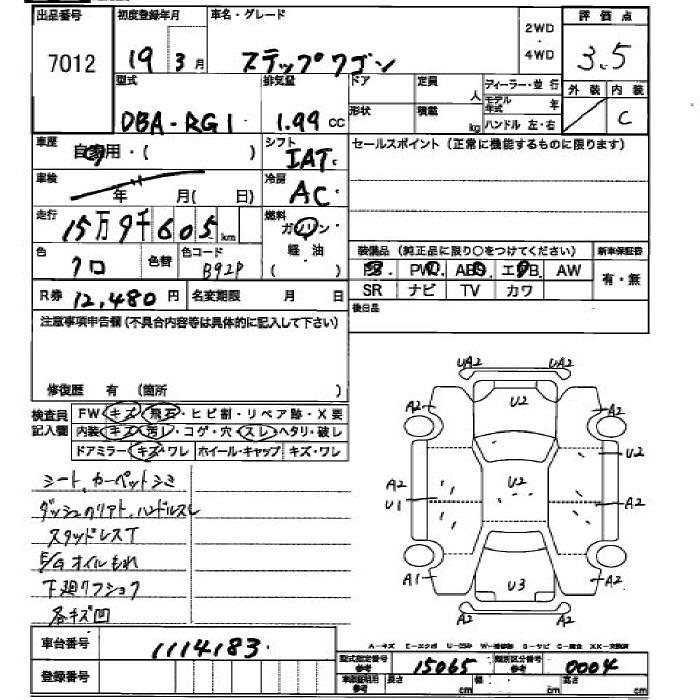 出品番号 初度登録年月 車名・グレード 2WD・4WD 評価点
7012 19 3月 ステップワゴン 3.5
型式 排気量 ドア 定員 人 ディーラー・並行 外装 内装
モデル年式 年
DBA-RG1 1.99cc 形状 積載 kg ハンドル 左・右 C
車歴 自家用・( ) シフト IAT セールスポイント(正常に機能するものに限ります)
車検 年 月( 日) 冷房 AC
走行 15万9千605km 燃料 ガソリン
軽油
( )
色 クロ 色替 色コード B92P
装備品(純正品に限り○をつけてください) 新車保証書
PS PW ABS エアB AW 有・無
SR ナビ TV カワ
R券 12,480円 名変期限 月 日
後日品
注意事項申告欄(不具合内容等は具体的に記入して下さい)
修復歴 有(箇所 )
検査員記入欄
FW キズ・飛石・ヒビ割・リペア跡・X要
内装・キズ・汚れ・コゲ・穴・スレ・ヘタリ・破レ
ドアミラー・キズ・ワレ ホイール・キャップ キズ・ワレ
シート、カーペットシミ
スタッドレスT
E/Gオイルもれ
下廻りフショク
各キズ凹
UA2 UA2
U2
A2 A2
U2
A2 U2
U1 A2
A1 U3 A2
A2 A2
車台番号 1114183
登録番号
A-キズ E-エクボ U-凹み W-補修跡 S-サビ C-腐食 XX-交換済
型式指定番号 参考 15065 類別区分番号 参考 0004
車庫証明用 参考 長さ cm 幅 cm 高さ cm